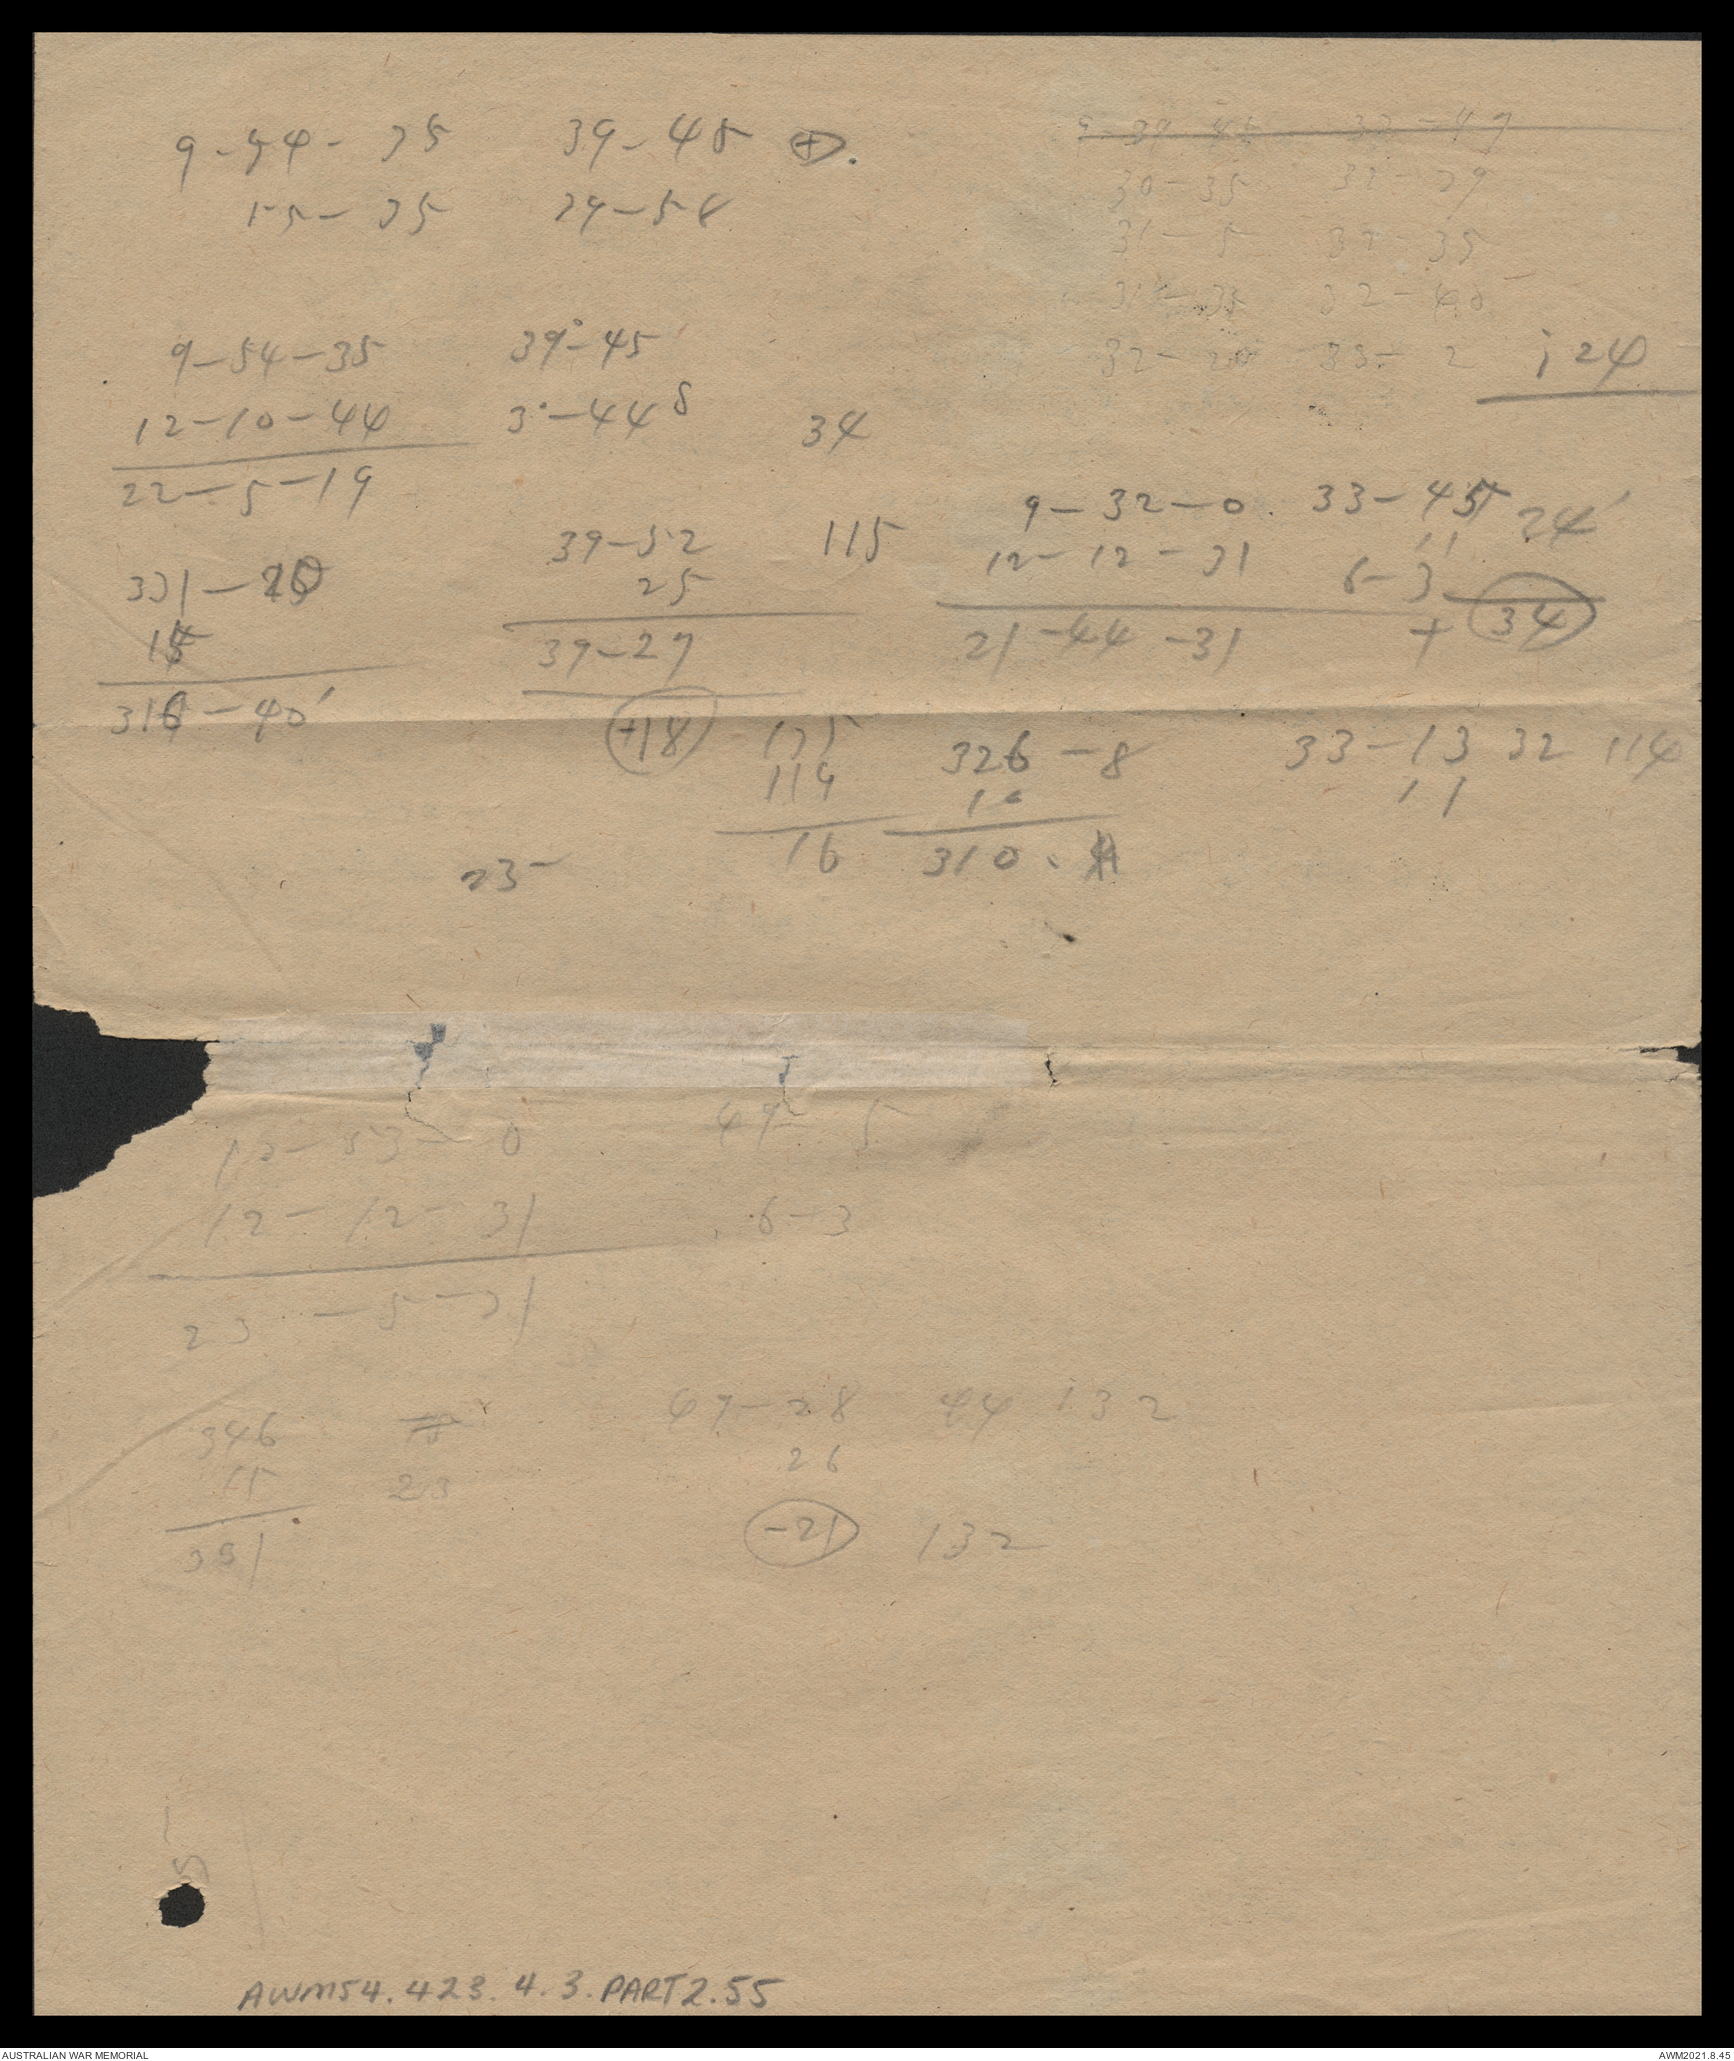 9-54-35 39-48 +.
55-35 39-58
30-35 32-29
31-5 32-35
31-35 32-48
32-20 33-2
124
9-54-35 39°-45'
12-10-44 3°-44 8 34
22-5-19
9-32-0 33-45 24'
11
12-12-31 6-3
21-44-31 + 34
39-52 115
25
39-27
+18
331-20
15
316-40'
135
119
16
326-8
16
310.
33-13 32 114
11
23-
53-0 49-5
12-12-31 6-3
23-5-31
346
15
331
23
47-28 44 132
26
-21 132
AWM54.423.4.3.PART2.55
AUSTRALIAN WAR MEMORIAL AWM2021.8.45